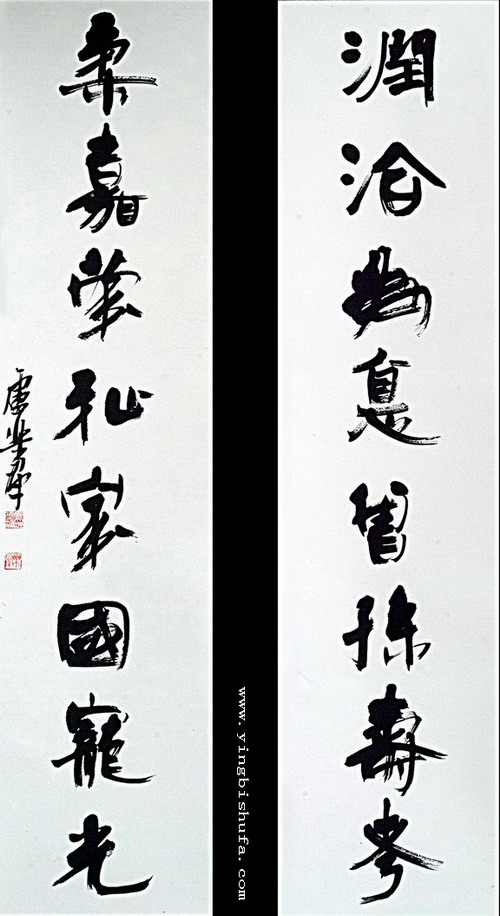 潤洽息曾孫壽考
柔嘉榮祉家國寵光
盧樂群
www.yingbishufa.com